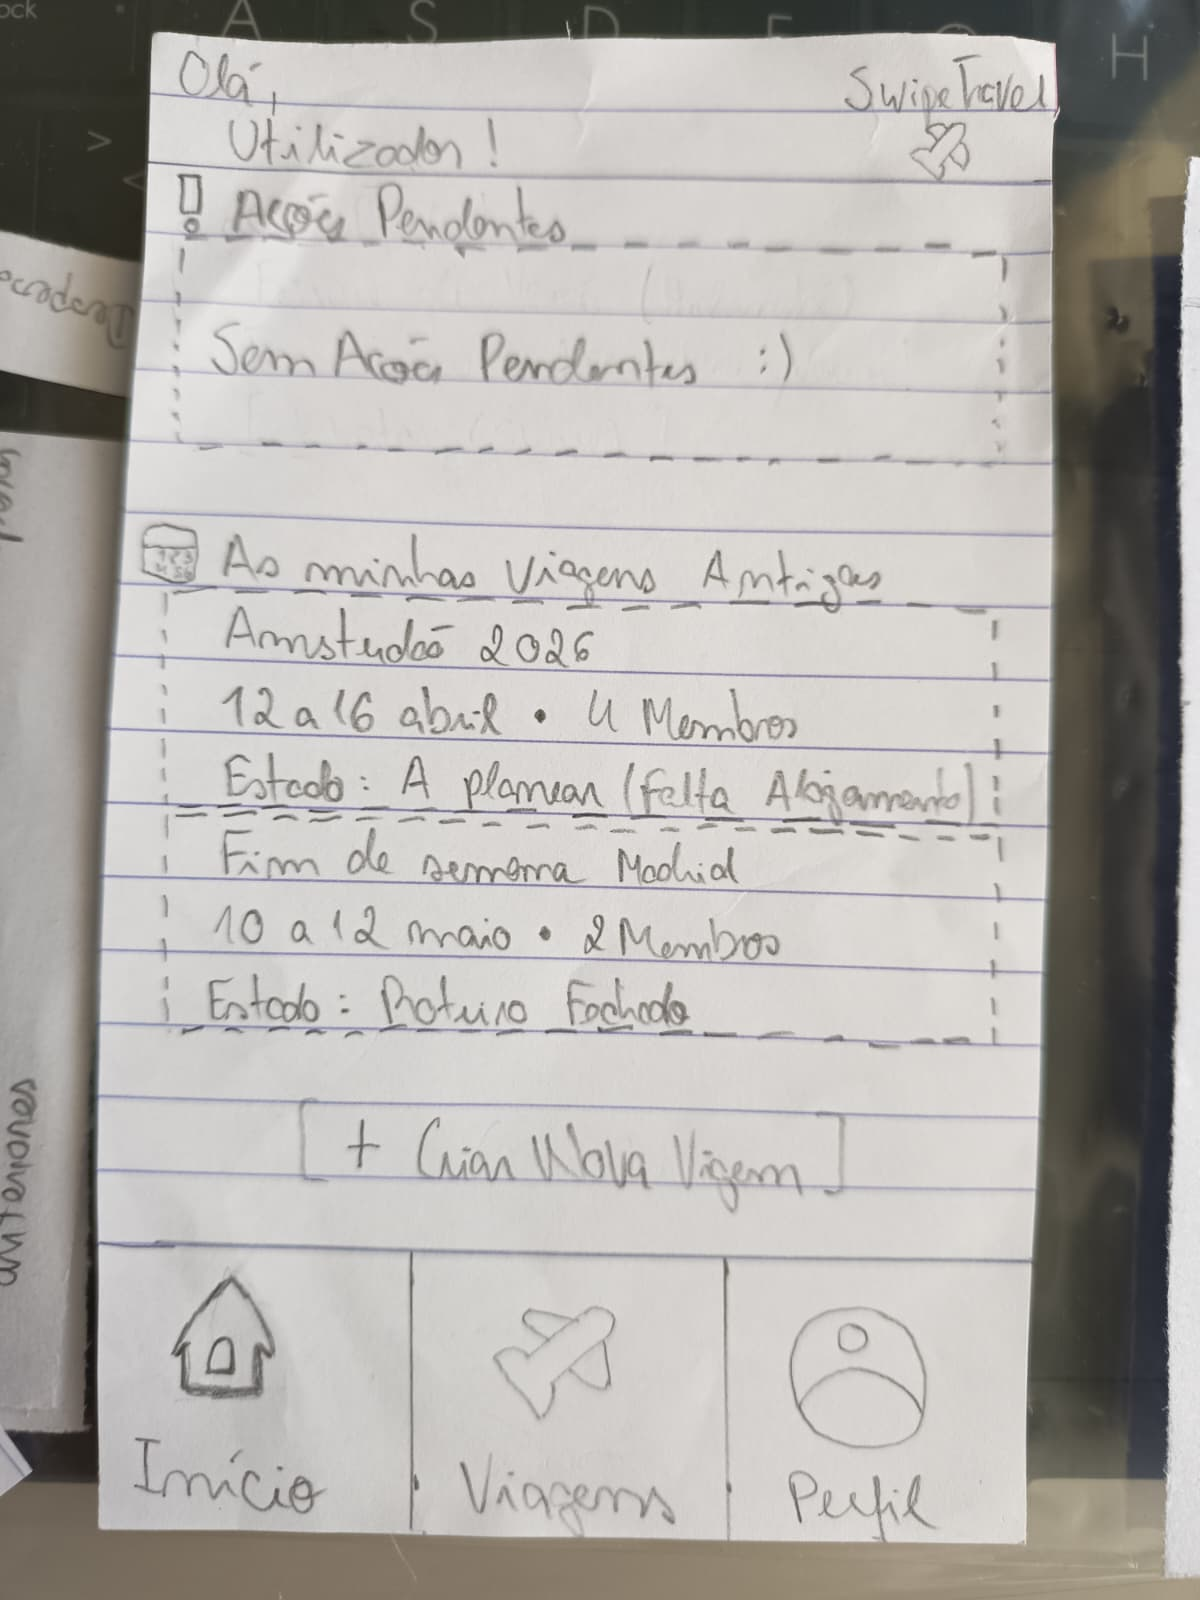 Olá,
SwipeTravel
Utilizador!
Ações Pendentes
Sem Ações Pendentes :)
As minhas Viagens Antigas
Amsterdão 2026
12 a 16 abril • 4 Membros
Estado: A planear (falta Alojamento)
Fim de semana Madrid
10 a 12 maio • 2 Membros
Estado: Roteiro Fechado
[+ Criar Nova Vigem]
Início
Viagens
Perfil
anteriores
A S D F G H